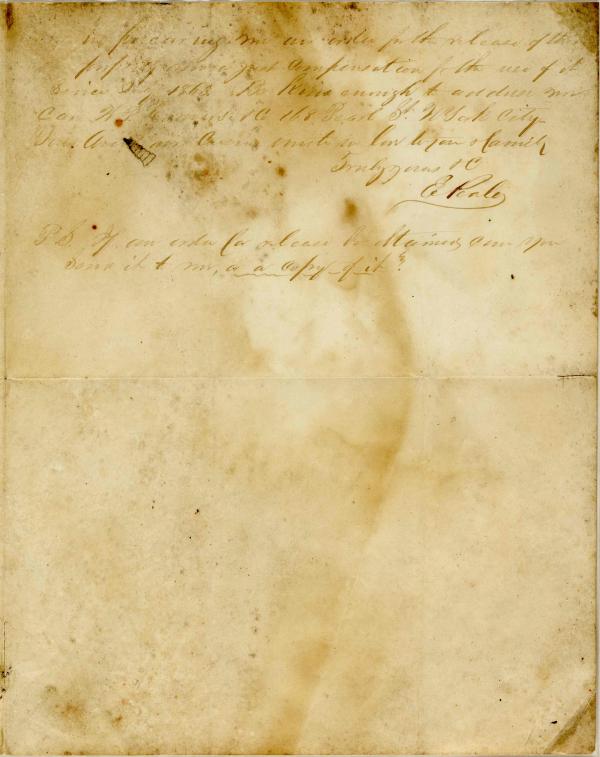 in procuring me an order for the release of the
property and a just compensation for the use of it
since July 1863. Be kind enough to address me
care 168 Pearl St. N York City
unite in love to you & family
Truly yours &C
E Peale
P.S. If an order for release be obtained, can you
send it to me, or a copy of it?